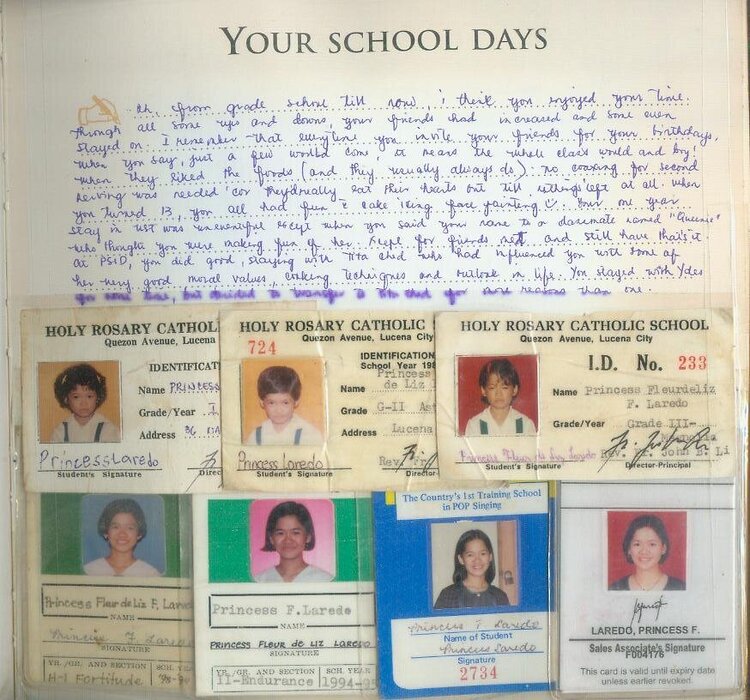 YOUR SCHOOL DAYS
Oh, from grade school till now, i think you enjoyed your time.
Through all some ups and downs, your friends had increased and some even
stayed on. I remember that everytime you invite your friends for your birthdays,
when you say, just a few would come, it means the whole class would and boy!
when they liked the foods (and they usually always do). no coaxing for second
serving was needed 'cos they'd really eat their hearts out till nothings left at all. when
you turned 13, you all had fun cake icing face painting. Your one year
stay in UST was uneventful except when you said your name to a classmate named "Queenie"
who thought you were making fun of her. Kept for friends and still have that's it.
at PSID, you did good, staying with Tita Ched who had influenced you with some of
her very good moral values, cooking techniques and outlook in life. You stayed with Ydes
for some time, but decided to transfer to Tita Ched for more reasons than one.
HOLY ROSARY CATHOL
Quezon Avenue, Lucena
IDENTIFICAT
Name PRINCESS
Grade/Year I
Address
Princess Laredo
Student's Signature
Direc
HOLY ROSARY CATHOLIC S
Quezon Avenue, Lucena City
724
IDENTIFICATION
School Year 198
Name Princess
de Liz
Grade G-II
Address Lucena
Princess Laredo
Student's Signature
Rev.
Director-
HOLY ROSARY CATHOLIC SCHOOL
Quezon Avenue, Lucena City
I.D. No. 233
Name Princess Fleurdeliz
F. Laredo
Grade/Year Grade III-
Rev. Fr. John B. Li
Student's Signature
Director-Principal
Princess Fleur de Liz F. Lare
NAME
Princess F. Laredo
SIGNATURE
YR./GR. AND SECTION SCH. YEAR
Fortitude
Princess F. Laredo
NAME
PRINCESS FLEUR DE LIZ LAREDO
SIGNATURE
YR./GR. AND SECTION SCH. YEAR
II-Endurance 1994-95
The Country's 1st Training School
in POP Singing
Princess F Laredo
Name of Student
Princess Laredo
Signature
2734
LAREDO, PRINCESS F.
Sales Associate's Signature
F004176
This card is valid until expiry date
unless earlier revoked.